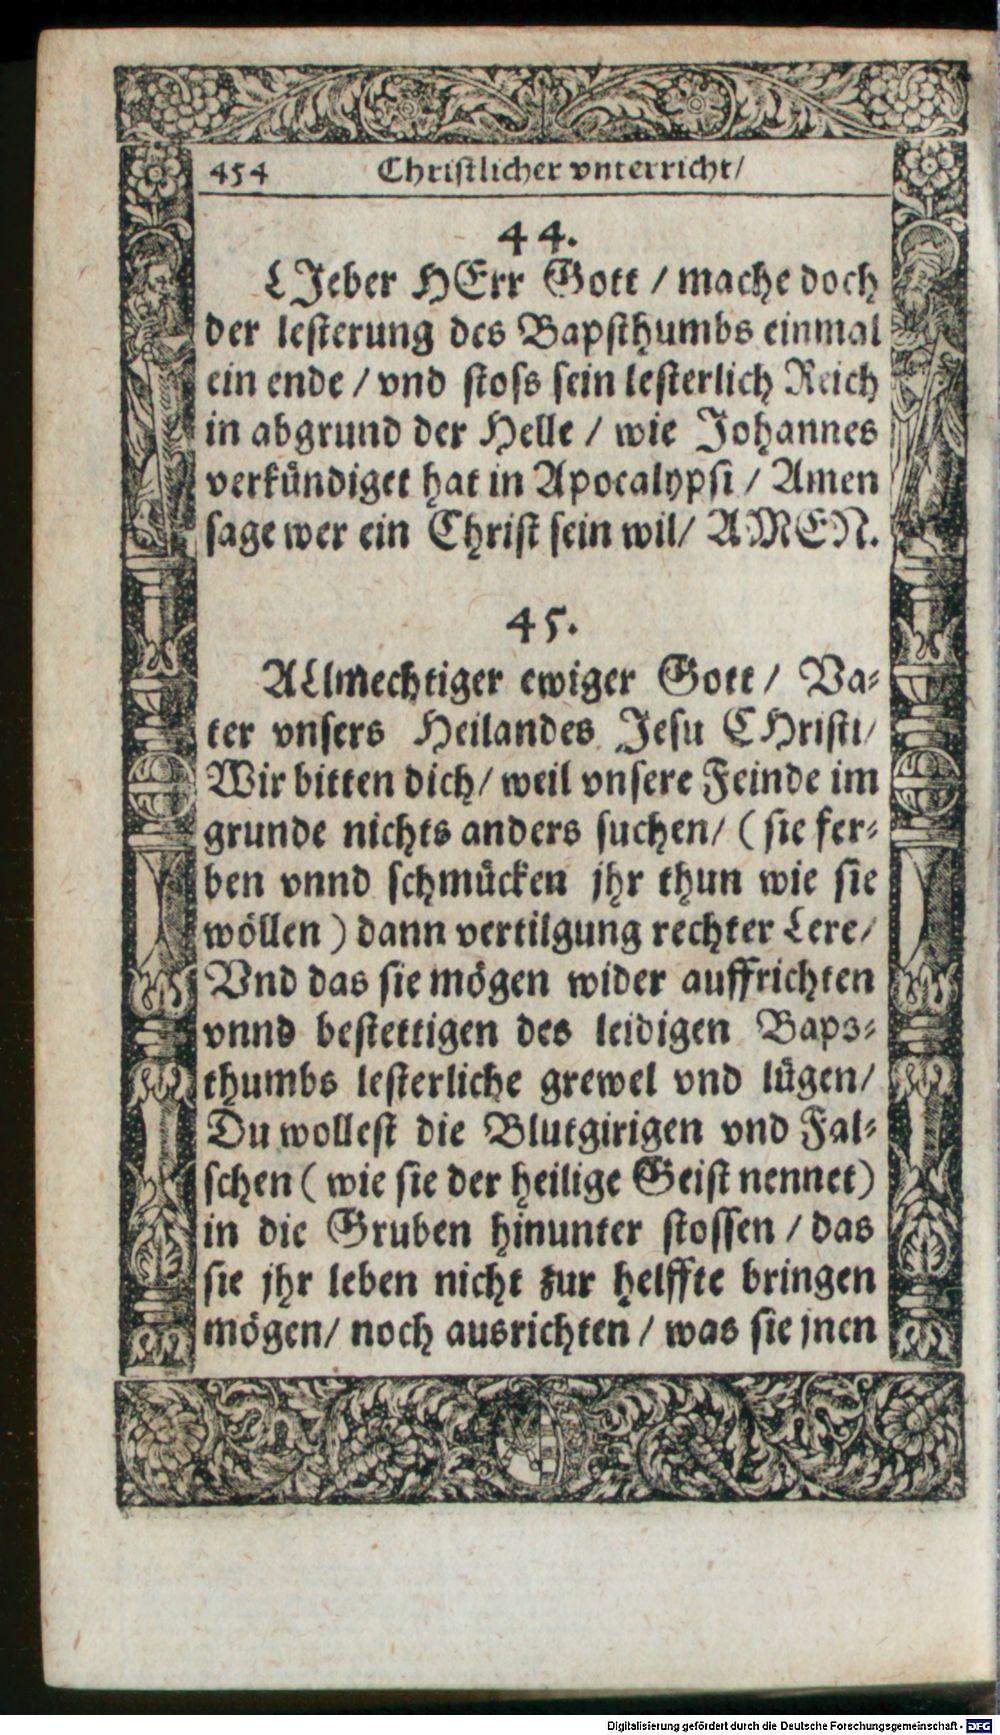 454 Christlicher vnterricht/
44.
LJeber HErr Gott / mache doch
der lesterung des Bapsthumbs einmal
ein ende / vnd stoss sein lesterlich Reich
in abgrund der Helle / wie Johannes
verkündiget hat in Apocalypsi / Amen
sage wer ein Christ sein wil/ AMEN.
45.
ALlmechtiger ewiger Gott / Va-
ter vnsers Heilandes Jesu CHristi/
Wir bitten dich/ weil vnsere Feinde im
grunde nichts anders suchen/ ( sie fer-
ben vnnd schmücken jhr thun wie sie
wöllen ) dann vertilgung rechter Lere/
Vnd das sie mögen wider auffrichten
vnnd bestettigen des leidigen Baps-
thumbs lesterliche grewel vnd lügen/
Du wollest die Blutgirigen vnd Fal-
schen ( wie sie der heilige Geist nennet)
in die Gruben hinunter stossen / das
sie jhr leben nicht zur helffte bringen
mögen/ noch ausrichten / was sie jnen
Digitalisierung gefördert durch die Deutsche Forschungsgemeinschaft - DFG